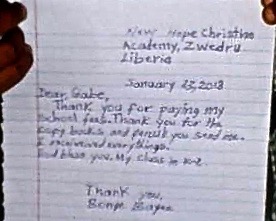 New Hope Christian
Academy, Zwedru
Liberia
January 23, 2018
Dear, Gabe,
Thank you for paying my
School fees. Thank you for the
copy books and pencil you send me.
I receiveed everythings.
God bless you. My class is
Thank you,